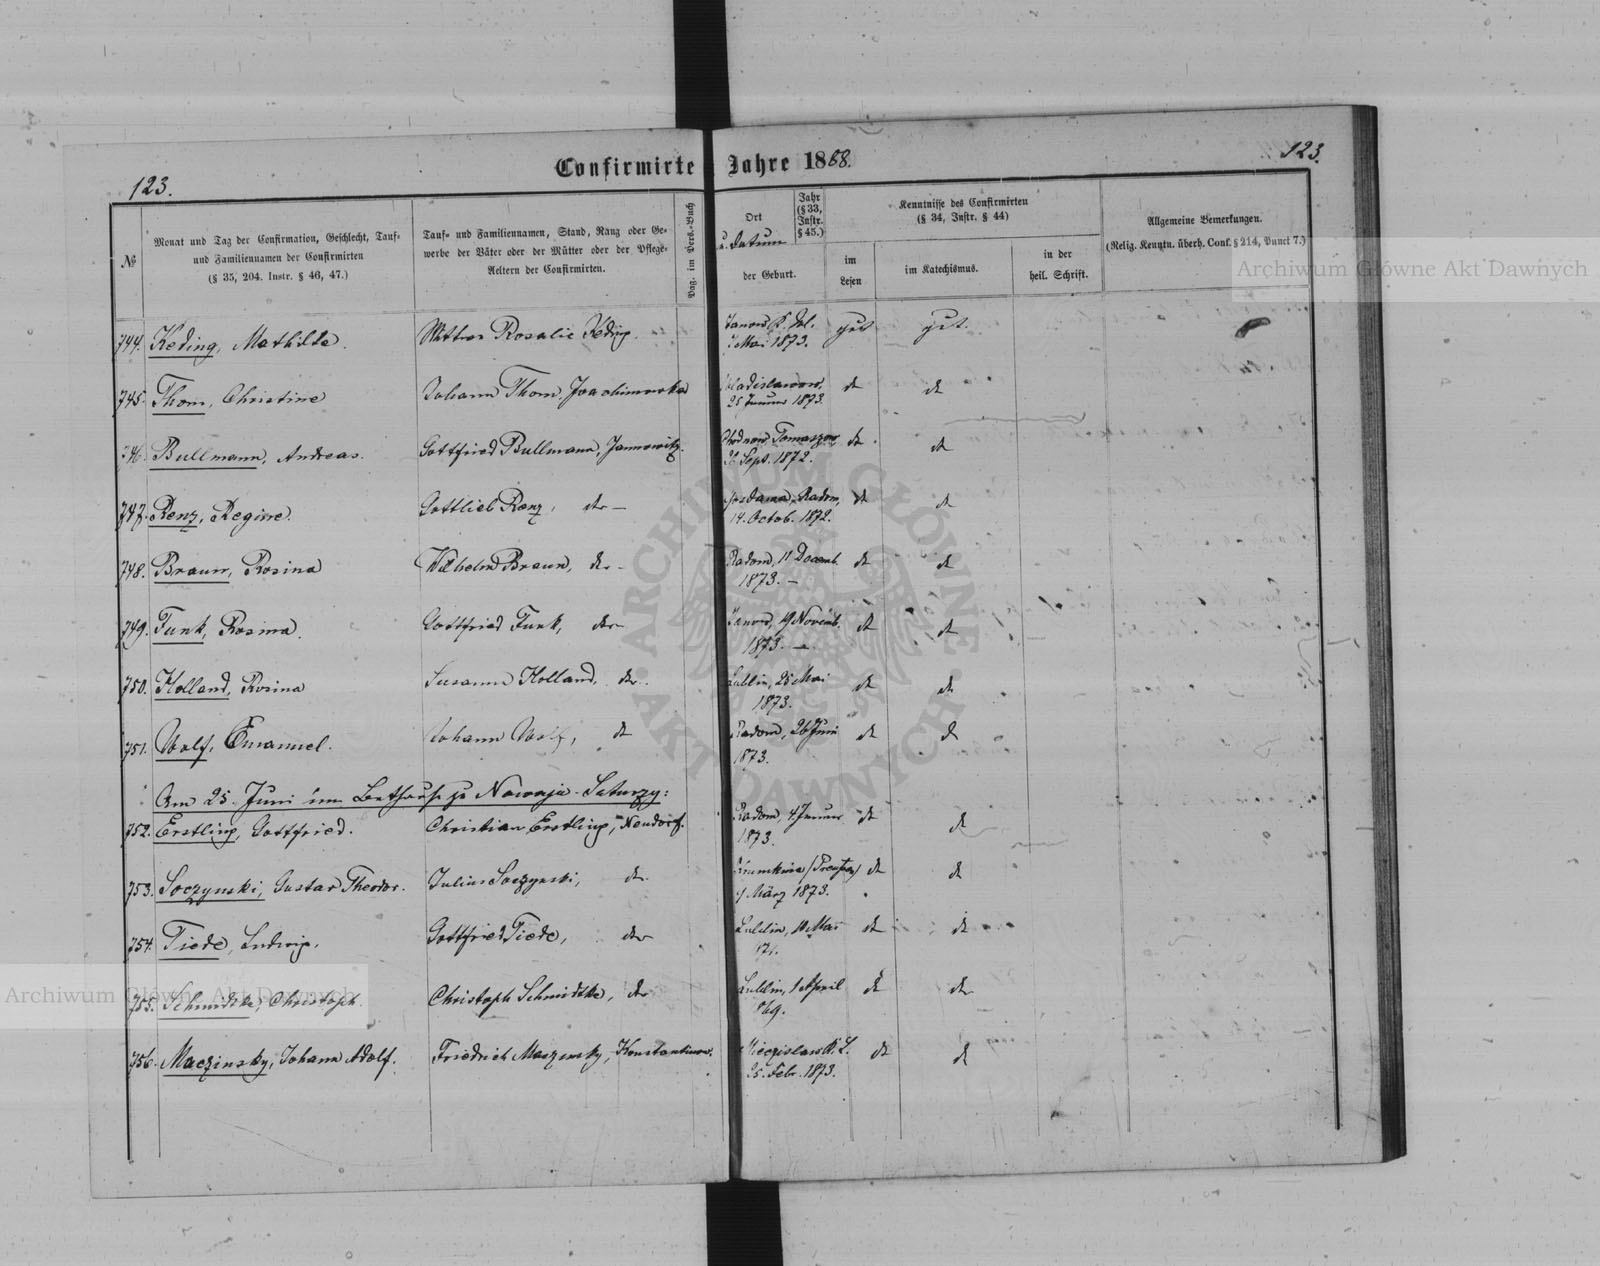 Confirmirte Jahre 1888.
123.
123.
№
Monat und Tag der Confirmation, Geschlecht, Tauf-
und Familiennamen der Confirmirten
(§ 35, 204. Instr. § 46, 47.)
Tauf- und Familiennamen, Stand, Rang oder Ge-
werbe der Väter oder der Mütter oder der Pflege-
Aeltern der Confirmirten.
Pag. im Pers.-Buch
Ort
u. Datum
der Geburt.
Jahr
(§ 33,
Instr.
§ 45.)
Kenntnisse des Confirmirten
(§ 34, Instr. § 44)
im
Lesen
im Katechismus.
in der
heil. Schrift.
Allgemeine Bemerkungen.
(Relig. Kenntn. überh. Conf. § 214, Punct 7.)
744. Keding, Mathilde. Wittwe Rosalie Keding. gut gut.
Mai 1873.
745. Thom, Christine Johann Thom, Joachimowka Wladislawow, dt dt
25 Januar 1873.
746. Bullmann, Andreas. Gottfried Bullmann, Jannowitz. Tomaszow dt dt
Sept. 1872.
747. Renz, Regine. Gottlieb Renz, dto Radom, dt dt
14. Octob. 1872.
748. Braun, Rosina Wilhelm Braun, dto Radom, 11 Decemb. dt dt
1873.
749. Funk, Rosina. Gottfried Funk, dto Janow, 19 Novemb. dt dt
1873.
750. Holland, Rosina Susanna Holland, dto Lublin, 25 Mai dt dt
1873.
751. Wolf, Emanuel. Johann Wolf, dt Radom, 26 Juni dt dt
1873.
Am 25. Juni im Bethause zu Nowaja-Saturzy:
752. Erstling, Gottfried. Christian Erstling, Neudorf. Radom, 4 Januar dt dt
1873.
753. Soczynski, Gustav Theodor. Julius Soczynski, dto dt dt
März 1873.
754. Tiede, Ludwig. Gottfried Tiede, dto Lublin, Mai dt dt
755. Schmidtke, Christoph. Christoph Schmidtke, dto Lublin, 1 April dt dt
869.
756. Maczinsky, Johann Adolf. Friedrich Maczinsky, Konstantinow. dt dt
25. Febr. 1873.
Archiwum Główne Akt Dawnych
Archiwum Główne Akt Dawnych
ARCHIWUM GŁÓWNE AKT DAWNYCH